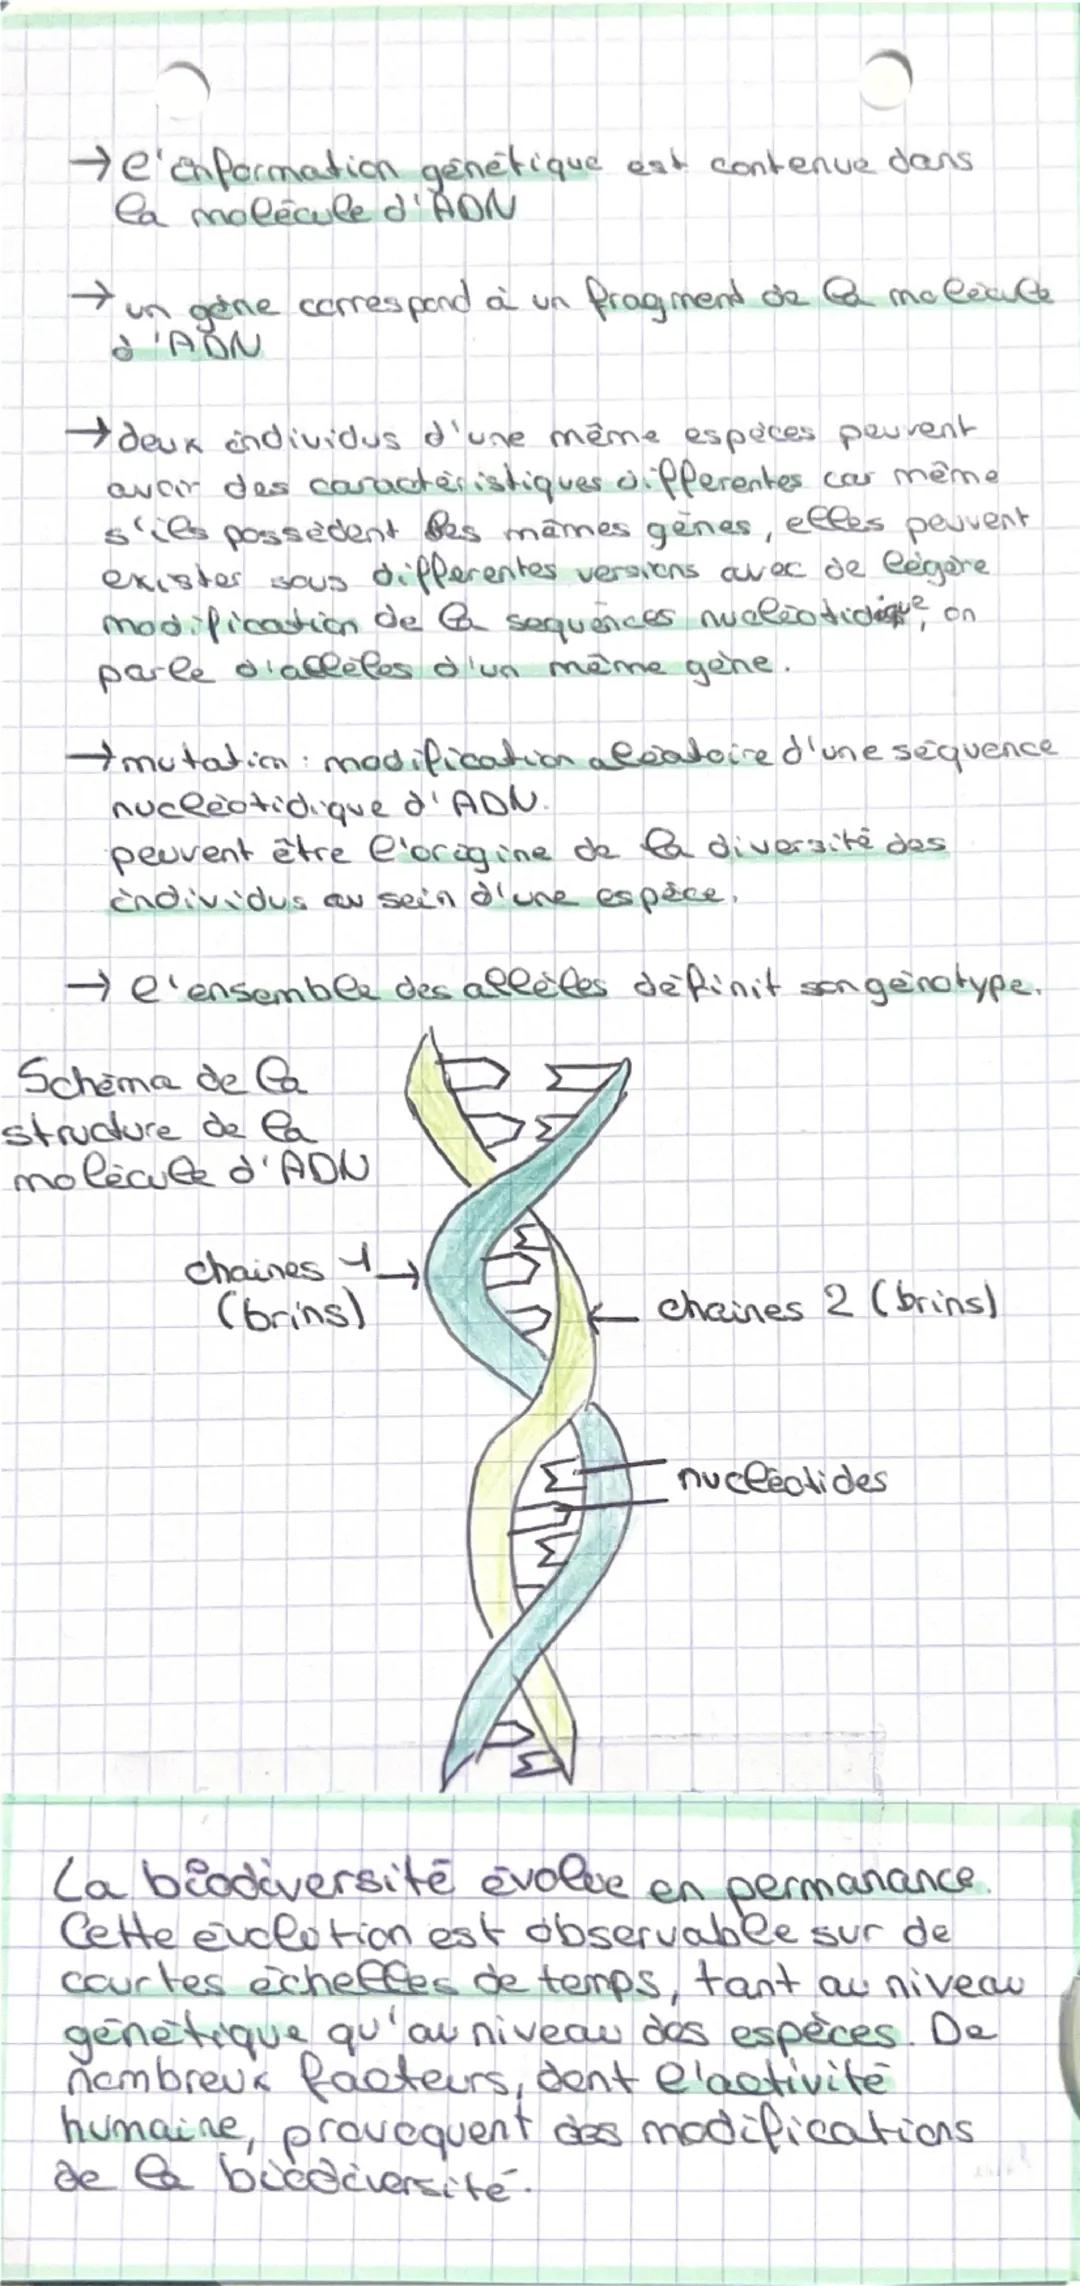 → l'information génétique est contenue dans
la molécule d'ADN
→ un gène correspond à un fragment de la molécule
d'ADN
→ deux individus d'une même espèces peuvent
avoir des caractéristiques differentes car même
s'ils possèdent les mêmes gènes, elles peuvent
exister sous differentes versions avec de légère
modification de la sequences nucléotidique, on
parle d'allèles d'un même gène.
→ mutation : modification aléatoire d'une séquence
nucléotidique d'ADN.
peuvent être l'origine de la diversité des
individus au sein d'une espèce.
→ l'ensemble des allèles définit son génotype.
Schéma de la
structure de la
molécule d'ADN
chaines 1 →
(brins)
← chaines 2 (brins)
nucléotides
La biodiversité évolue en permanance.
Cette évolution est observable sur de
courtes échelles de temps, tant au niveau
génétique qu'au niveau des espèces. De
nombreux facteurs, dont l'activité
humaine, provoquent des modifications
de la biodiversité.